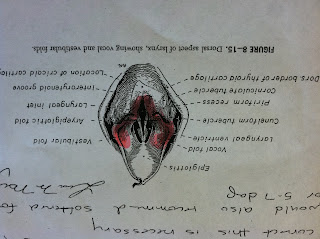 correct this is necessary
would also recommend
or 5-7 day
Epiglottis
Vocal fold
Laryngeal ventricle
Cuneiform tubercle
Piriform recess
Corniculate tubercle
Dors. border of thyroid cartilage
Vestibular fold
Aryepiglottic fold
Laryngeal inlet
Interarytenoid groove
Location of cricoid cartilage
FIGURE 8–15. Dorsal aspect of larynx, showing vocal and vestibular folds.